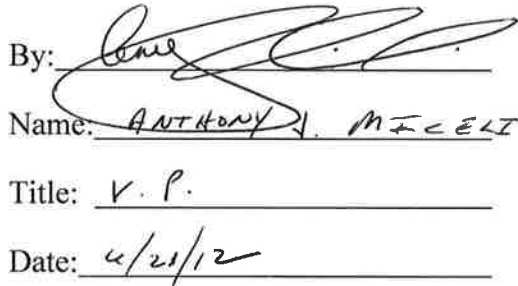 By:
Name: ANTHONY J. MICELI
Title: V. P.
Date: